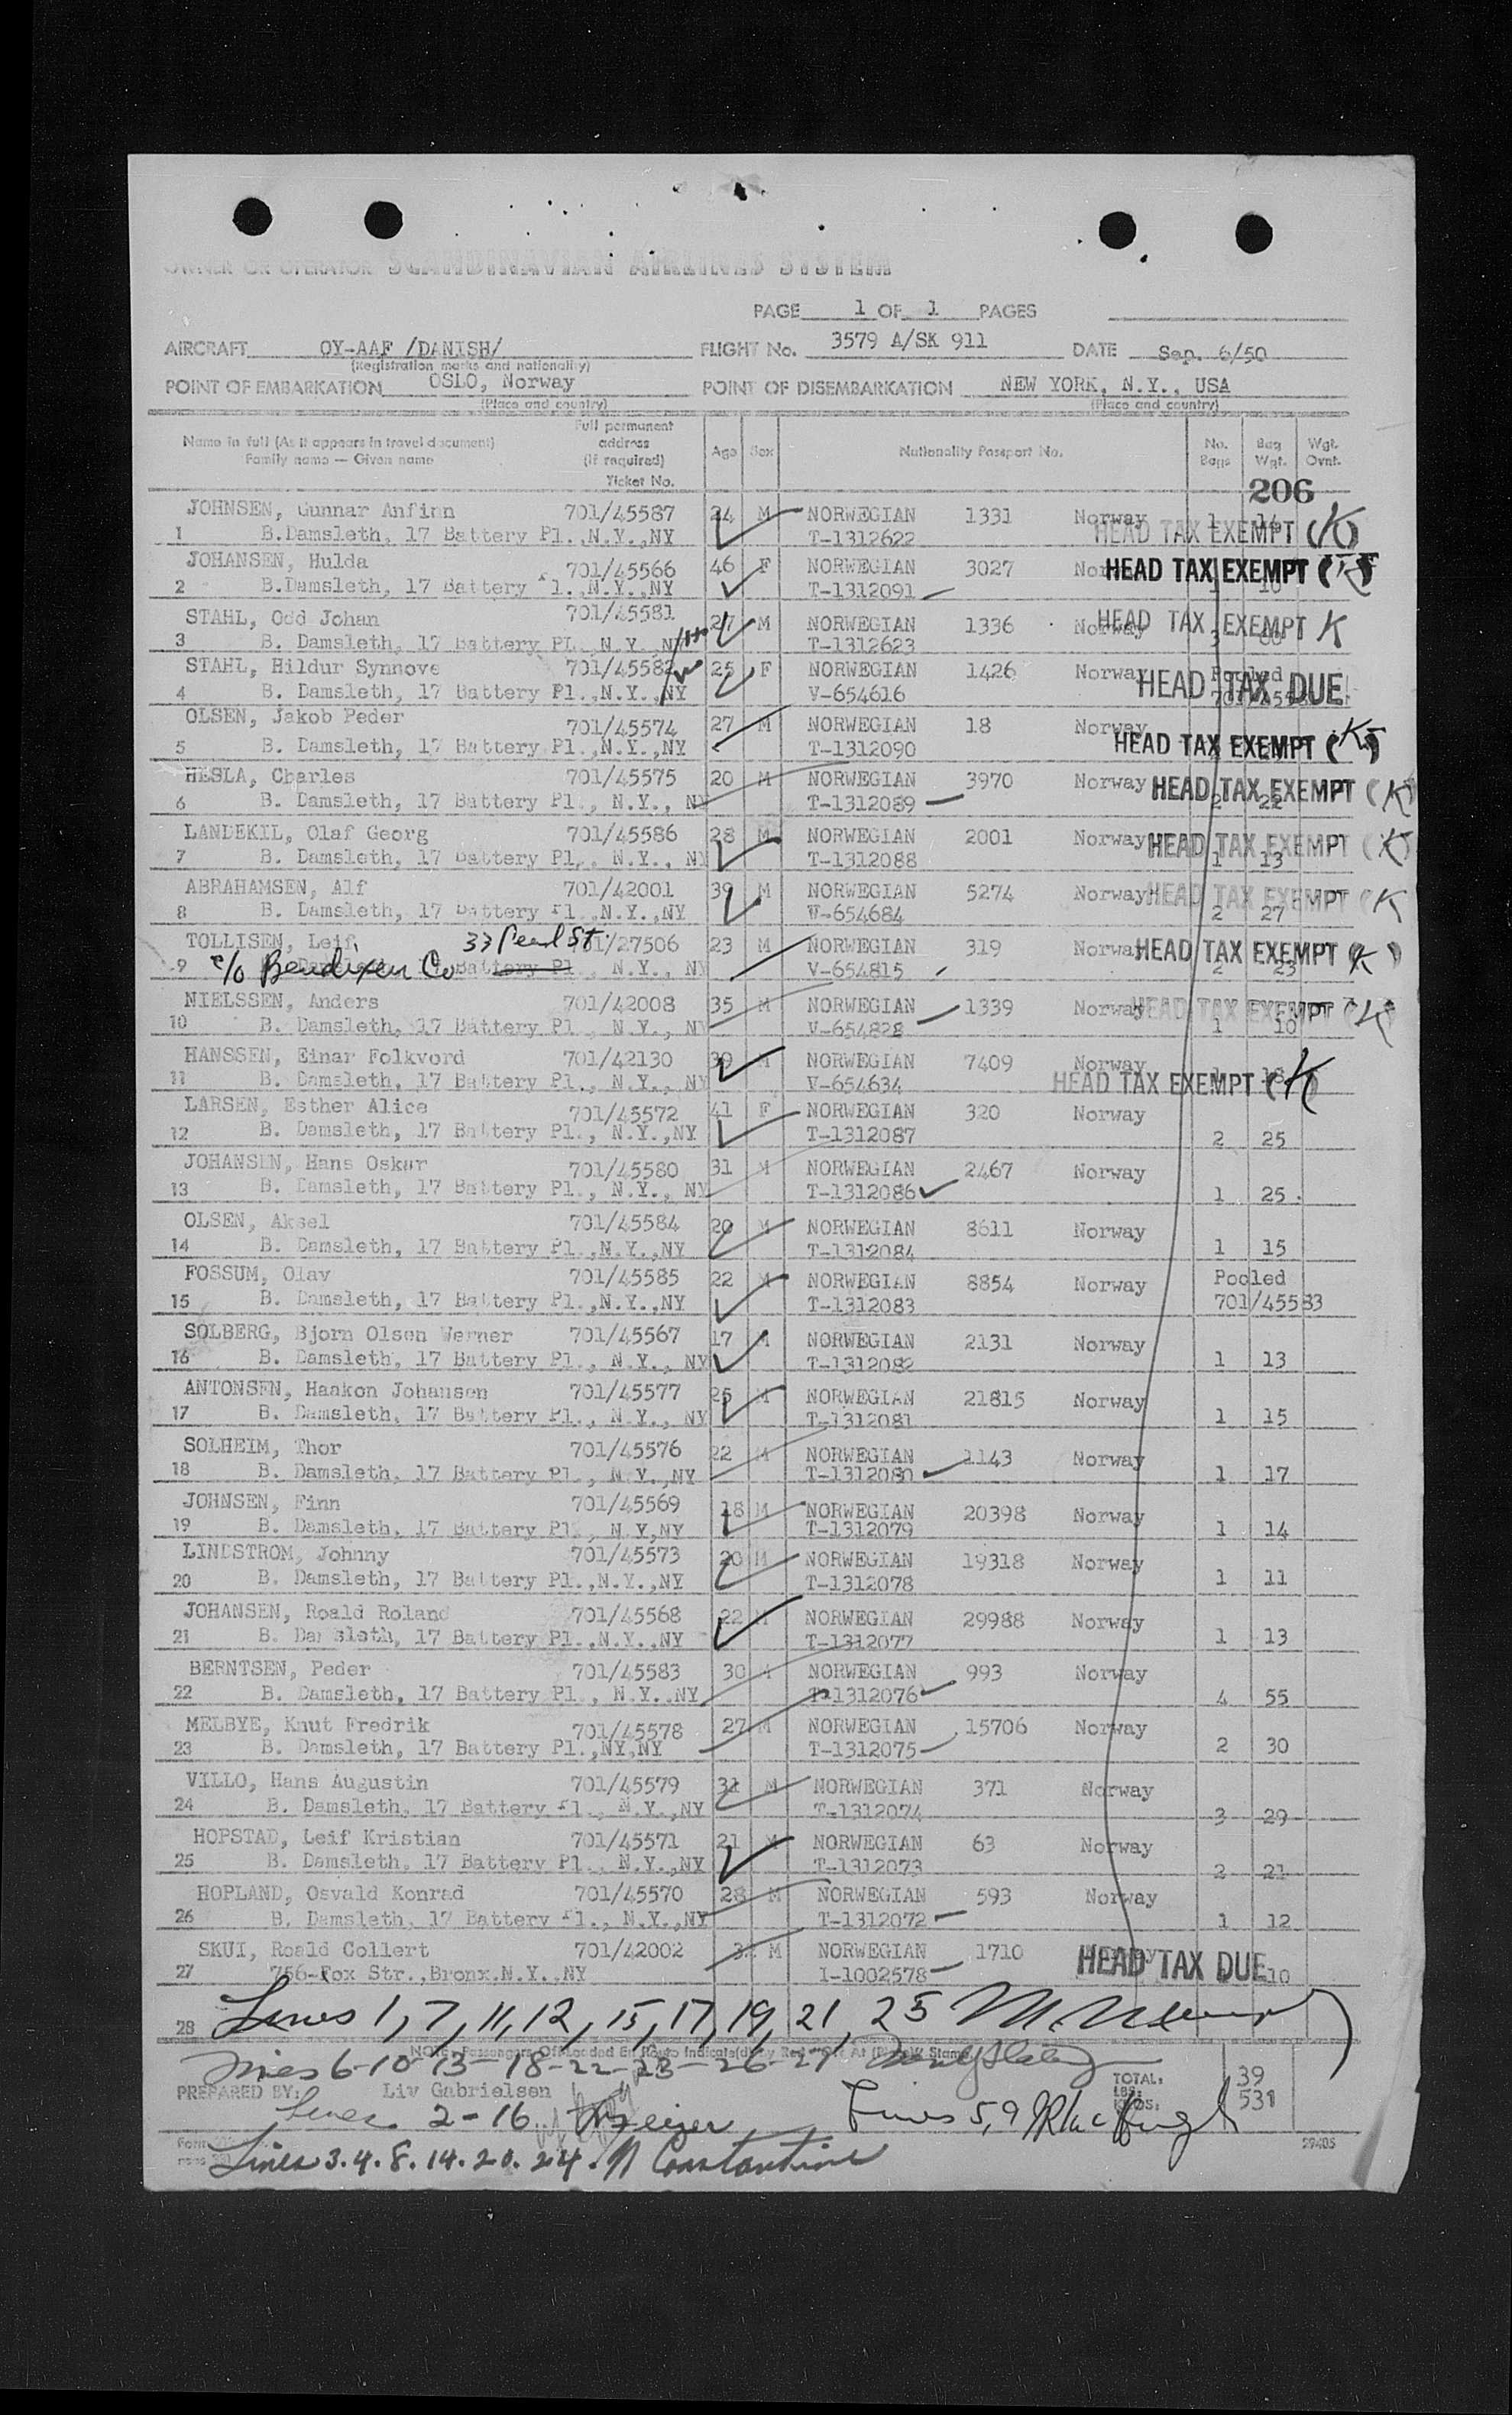 OWNER OR OPERATOR SCANDINAVIAN AIRLINES SYSTEM
PAGE 1 OF 1 PAGES
AIRCRAFT OY-AAF /DANISH/ FLIGHT No. 3579 A/SK 911 DATE Sep. 6/50
(Registration marks and nationality)
POINT OF EMBARKATION OSLO, Norway POINT OF DISEMBARKATION NEW YORK, N.Y., USA
(Place and country) (Place and country)
Name in full (As it appears in travel document) Family name — Given name
Full permanent address (if required) Ticket No.
Age Sex Nationality Passport No. No. Bags Bag Wgt. Wgt. Ovnt.
206
JOHNSEN, Gunnar Anfinn 701/45587 24 M NORWEGIAN 1331 Norway 1 14
1 B.Damsleth, 17 Battery Pl.,N.Y.,NY T-1312622 HEAD TAX EXEMPT (K)
JOHANSEN, Hulda 701/45566 46 F NORWEGIAN 3027 HEAD TAX EXEMPT
2 B.Damsleth, 17 Battery Pl.,N.Y.,NY T-1312091
STAHL, Odd Johan 701/45581 27 M NORWEGIAN 1336 Norway HEAD TAX EXEMPT K
3 B. Damsleth, 17 Battery PL., N.Y., NY T-1312623 3
STAHL, Hildur Synnove 701/45582 25 F NORWEGIAN 1426 Norway Pooled
4 B. Damsleth, 17 Battery Pl.,N.Y.,NY V-654616 HEAD TAX DUE
OLSEN, Jakob Peder 701/45574 27 M NORWEGIAN 18 Norway
5 B. Damsleth, 17 Battery Pl.,N.Y.,NY T-1312090 HEAD TAX EXEMPT (K)
HESLA, Charles 701/45575 20 M NORWEGIAN 3970 Norway HEAD TAX EXEMPT (K)
6 B. Damsleth, 17 Battery Pl., N.Y., NY T-1312089 2 22
LANDEKIL, Olaf Georg 701/45586 28 M NORWEGIAN 2001 Norway HEAD TAX EXEMPT (K)
7 B. Damsleth, 17 Battery Pl., N.Y., NY T-1312088 1 13
ABRAHAMSEN, Alf 701/42001 39 M NORWEGIAN 5274 Norway HEAD TAX EXEMPT (K
8 B. Damsleth, 17 Battery Pl.,N.Y.,NY V-654684 2 27
TOLLISEN, Leif 33 Pearl St. 701/27506 23 M NORWEGIAN 319 Norway HEAD TAX EXEMPT (K)
9 c/o Bendixen Co Battery Pl., N.Y., NY V-654815 2 23
NIELSSEN, Anders 701/42008 35 M NORWEGIAN 1339 Norway HEAD TAX EXEMPT (K)
10 B. Damsleth, 17 Battery Pl., N.Y., NY V-654828 1 10
HANSSEN, Einar Folkvord 701/42130 39 M NORWEGIAN 7409 Norway
11 B. Damsleth, 17 Battery Pl., N.Y., NY V-654634 HEAD TAX EXEMPT (K)
LARSEN, Esther Alice 701/45572 41 F NORWEGIAN 320 Norway
12 B. Damsleth, 17 Battery Pl., N.Y.,NY T-1312087 2 25
JOHANSEN, Hans Oskar 701/45580 31 M NORWEGIAN 2467 Norway
13 B. Damsleth, 17 Battery Pl., N.Y., NY T-1312086 1 25
OLSEN, Aksel 701/45584 20 M NORWEGIAN 8611 Norway
14 B. Damsleth, 17 Battery Pl.,N.Y.,NY T-1312084 1 15
FOSSUM, Olav 701/45585 22 M NORWEGIAN 8854 Norway Pooled
15 B. Damsleth, 17 Battery Pl.,N.Y.,NY T-1312083 701/45583
SOLBERG, Bjorn Olsen Werner 701/45567 17 M NORWEGIAN 2131 Norway
16 B. Damsleth, 17 Battery Pl., N.Y., NY T-1312082 1 13
ANTONSEN, Haakon Johansen 701/45577 25 M NORWEGIAN 21815 Norway
17 B. Damsleth, 17 Battery Pl., N.Y., NY T-1312081 1 15
SOLHEIM, Thor 701/45576 22 M NORWEGIAN 1143 Norway
18 B. Damsleth, 17 Battery Pl., N.Y.,NY T-1312080 1 17
JOHNSEN, Finn 701/45569 18 M NORWEGIAN 20398 Norway
19 B. Damsleth, 17 Battery Pl., N.Y,NY T-1312079 1 14
LINDSTROM, Johnny 701/45573 20 M NORWEGIAN 19318 Norway
20 B. Damsleth, 17 Battery Pl.,N.Y.,NY T-1312078 1 11
JOHANSEN, Roald Roland 701/45568 22 M NORWEGIAN 29988 Norway
21 B. Damsleth, 17 Battery Pl.,N.Y.,NY T-1312077 1 13
BERNTSEN, Peder 701/45583 30 M NORWEGIAN 993 Norway
22 B. Damsleth, 17 Battery Pl., N.Y.,NY T-1312076 4 55
MELBYE, Knut Fredrik 701/45578 27 M NORWEGIAN 15706 Norway
23 B. Damsleth, 17 Battery Pl.,NY,NY T-1312075 2 30
VILLO, Hans Augustin 701/45579 31 M NORWEGIAN 371 Norway
24 B. Damsleth, 17 Battery Pl., N.Y.,NY T-1312074 3 29
HOPSTAD, Leif Kristian 701/45571 21 M NORWEGIAN 63 Norway
25 B. Damsleth, 17 Battery Pl., N.Y.,NY T-1312073 2 21
HOPLAND, Osvald Konrad 701/45570 28 M NORWEGIAN 593 Norway
26 B. Damsleth, 17 Battery Pl., N.Y.,NY T-1312072 1 12
SKUI, Roald Collert 701/42002 M NORWEGIAN 1710 HEAD TAX DUE
27 756-Fox Str.,Bronx.N.Y.,NY I-1002578 10
28 Lines 1, 7, 11, 12, 15, 17, 19, 21, 25
NOTE: Passengers Offloaded En Route Indicate(d) By Red Stamp
Lines 6-10-13-18-22-23-26-27
PREPARED BY: Liv Gabrielsen TOTAL: 39
LBS: KILOS: 531
Lines 2-16 Lines 5,9
Form 59405
Lines 3.4.8.14.20.24. N Constantine